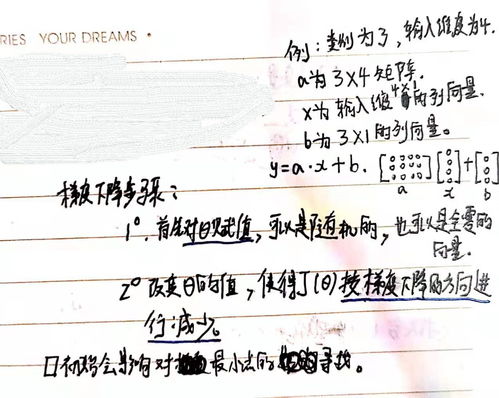 RIES YOUR DREAMS •
例：类别为3，输入维度为4.
a为 3×4 矩阵.
x为 输入维4×1的列向量.
b为 3×1 的列向量。
y=a·x+b.
a x b
梯度下降步骤：
1° 首先对θ赋值，可以是随机的，也可以是全零的
向量.
2° 改变θ的值，使得J(θ)按梯度下降的方向进
行减少。
口初始会影响对最小点的寻找。